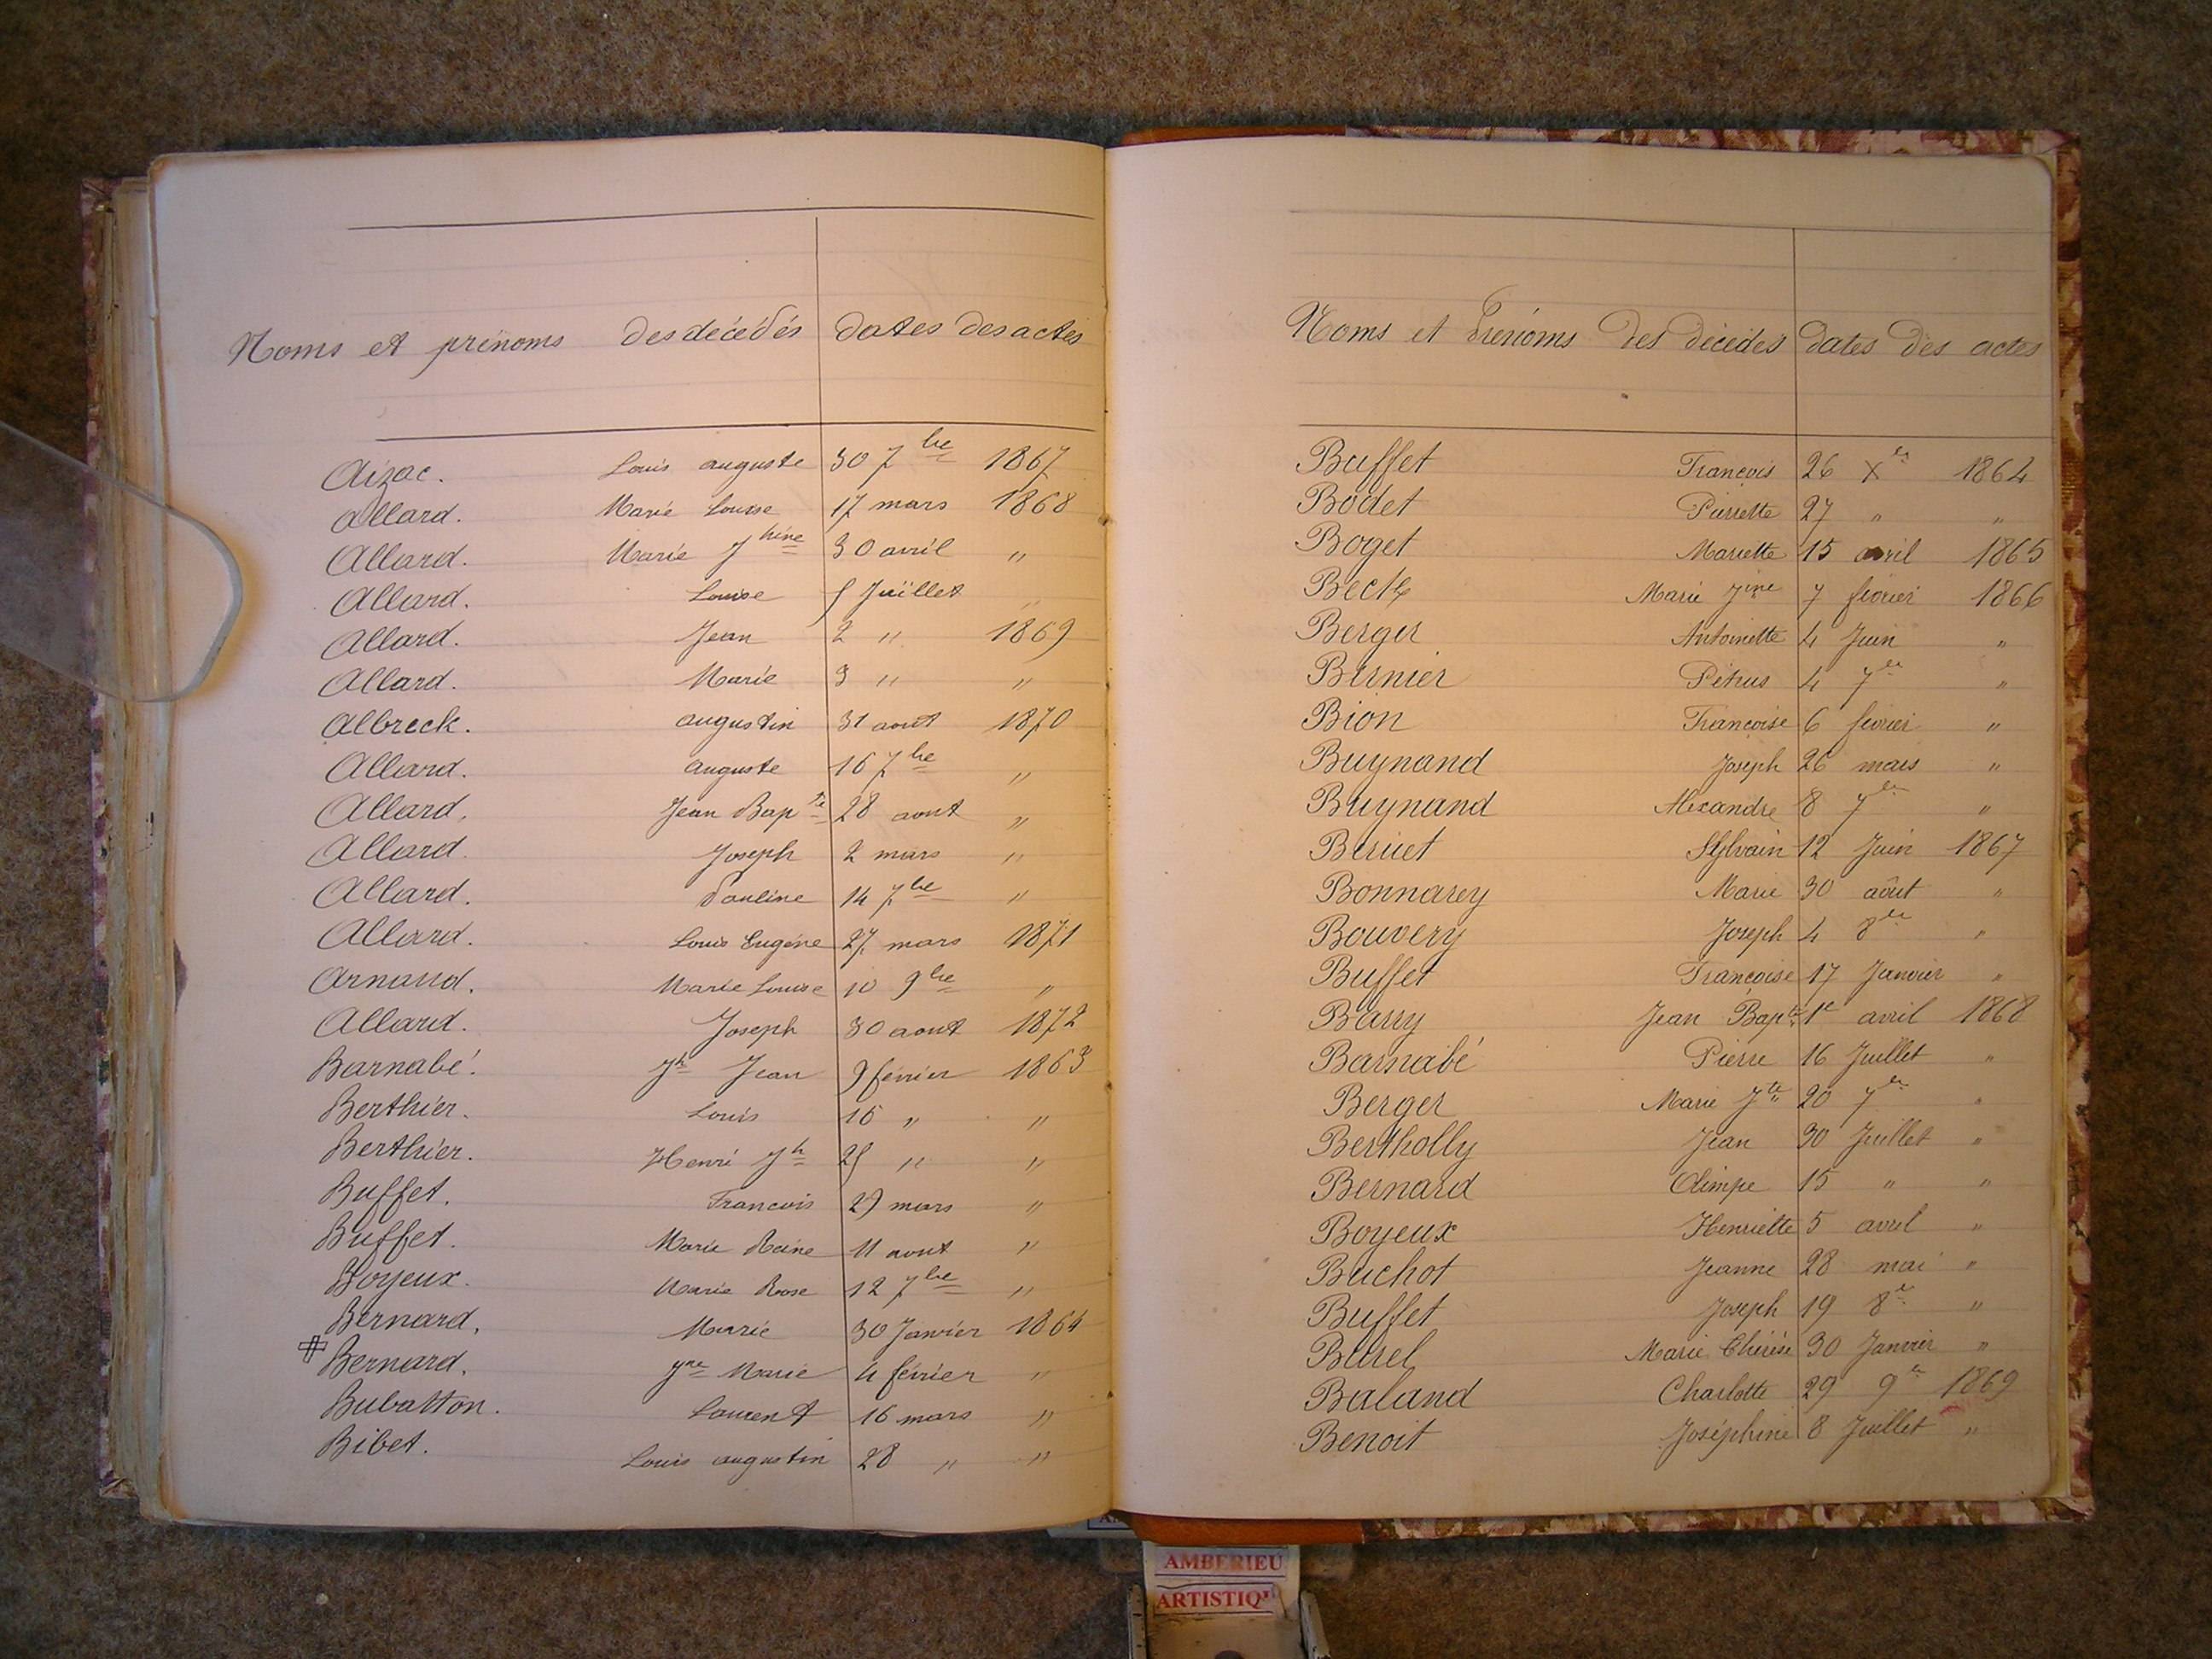 Noms et prénoms des décédés dates des actes
Aizac. Louis auguste 30 7bre 1867
Allard. Marie Louise 17 mars 1868
Allard. Marie Jhine 30 avril "
Allard. Louise 5 Juillet "
Allard. Jean 2 " 1869
Allard. Marie 3 " "
Albreck. augustin 31 aout 1870
Allard. auguste 16 7bre "
Allard. Jean Bapte 28 aout "
Allard. Joseph 2 mars "
Allard. Pauline 14 7bre "
Allard. Louis Eugène 27 mars 1871
Arnaud. Marie Louise 10 9bre "
Allard. Joseph 30 aout 1872
Barnabé. Jh Jean 9 février 1863
Berthier. Louis 16 " "
Berthier. Henri Jh 25 " "
Buffet. Francois 29 mars "
Buffet. Marie Reine 11 aout "
Boyeux. Marie Rose 12 7bre "
Bernard. Marie 30 Janvier 1864
# Bernard. Jne Marie 4 février "
Bubatton. Laurent 16 mars "
Bibet. Louis augustin 28 " "
Noms et Prénoms des décédés dates des actes
Buffet François 26 Xbre 1864
Bodet Pierrette 27 " "
Boget Mariette 15 avril 1865
Marie Jine 7 février 1866
Berger Antoinette 4 Juin "
Bernier Pétrus 4 7bre "
Bion Françoise 6 février "
Buynand Joseph 26 mars "
Buynand Alexandre 8 7bre "
Berliet Sylvain 12 Juin 1867
Bonnarey Marie 30 août "
Bouvery Joseph 4 8bre "
Buffet Françoise 17 Janvier "
Barry Jean Bapte 1e avril 1868
Barnabé Pierre 16 Juillet "
Berger Marie Jte 20 7bre "
Bertholly Jean 30 Juillet "
Bernard Olimpe 15 " "
Boyeux Henriette 5 avril "
Buchot Jeanne 28 mai "
Buffet Joseph 19 8e "
Burel Marie Thérèse 30 Janvier "
Baland Charlotte 29 9e 1869
Benoit Joséphine 8 Juillet "
AMBERIEU
ARTISTIQU